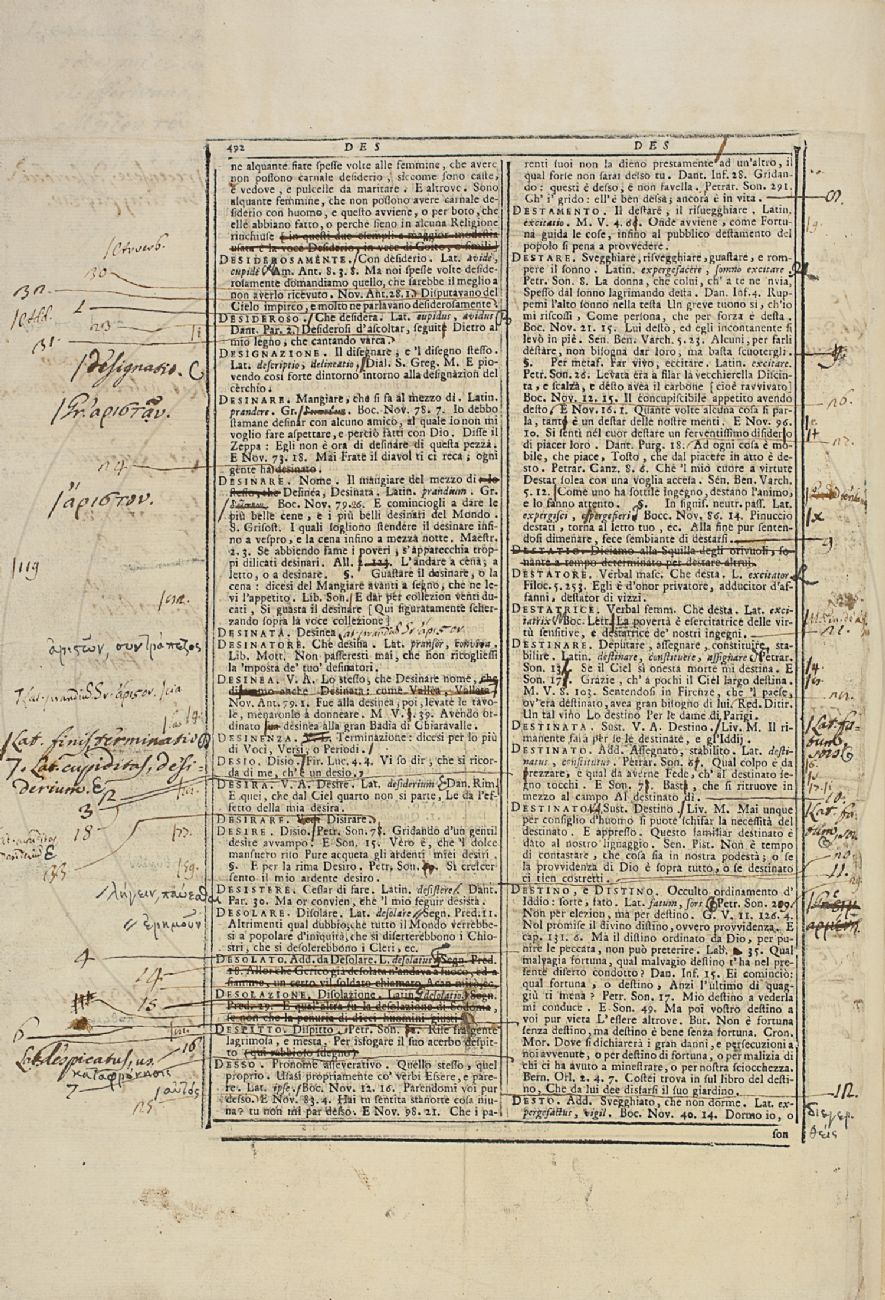 492 DES DES
ne alquante fiate spesse volte alle femmine, che avere
non possono carnale desiderio, siccome sono caste,
e vedove, e pulcelle da maritare. E altrove. Sono
alquante femmine, che non possono avere carnale de-
siderio con huomo, e questo avviene, o per boto, che
elle abbiano fatto, o perche sieno in alcuna Religione
rinchiuse
DESIDEROSAMENTE. Con desiderio. Lat. avidè,
cupidè Am. Ant. 8. 3. 8. Ma noi spesse volte deside-
rosamente domandiamo quello, che sarebbe il meglio a
non averlo ricevuto. Nov. Ant. 28. 1. Disputavano del
Cielo impirco, e molto ne parlavano desiderosamente.
DESIDEROSO. Che desidera. Lat. cupidus, avidus
Dant. Par. 2. Desiderosi d'ascoltar, seguiti Dietro al
mio legno, che cantando varca.
DESIGNAZIONE. Il disegnare; e 'l disegno stesso.
Lat. descriptio, delineatio, Dial. S. Greg. M. E pio-
vendo così forte dintorno intorno alla designazion del
cerchio.
DESINARE. Mangiare, che si fa al mezzo dì. Latin.
prandere. Gr. Bocc. Nov. 78. 7. Io debbo
stamane desinar con alcuno amico, al quale io non mi
voglio fare aspettare, e perciò fatti con Dio. Disse il
Zeppa: Egli non è ora di desinare di questa pezza.
E Nov. 73. 18. Mai Frate il diavol ti ci reca; ogni
gente ha desinato.
DESINARE. Nome. Il mangiare del mezzo dì
Desinéa, Desinata. Latin. prandium. Gr.
Bocc. Nov. 79. 26. E cominciogli a dare le
più belle cene, e i più belli desinari del Mondo.
S. Grisost. I quali sogliono stendere il desinare infi-
no a vespro, e la cena infino a mezza notte. Maestr.
2. 3. Se abbiendo fame i poveri, s'apparecchia trop-
pi dilicati desinari. All. L'andare a cena; a
letto, o a desinare. §. Guastare il desinare, o la
cena: dicesi del Mangiare avanti a segno, che ne le-
vi l'appetito. Lib. Son. E dar per collezion venti du-
cati, Si guasta il desinare [Qui figuratamente scher-
zando sopra la voce collezione]
DESINATA. Desinea
DESINATORE. Che desina. Lat. pransor, conviva.
Lib. Mott. Non passeresti mai, che non ricogliessi
l'imposta de' tuo' desinatori.
DESINEA. V. A. Lo stesso, che Desinare nome,
Nov. Ant. 79. 1. Fue alla desinea, poi, levate le tavo-
le, menaronlo a donneare. M. V. 39. Avendo or-
dinato desinéa alla gran Badia di Chiaravalle.
DESINENZA. Terminazione: dicesi per lo più
di Voci, Versi, o Periodi.
DESIO. Disio. Fir. Luc. 4. 4. Vi so dir, che si ricor-
da di me, ch' è un desio,
DESIRA. V. A. Desire. Lat. desiderium Dan. Rim.
E quei, che dal Ciel quarto non si parte, Le dà l'ef-
fetto della mia desira.
DESIRARE. Disirare.
DESIRE. Disio. Petr. Son. Gridando d'un gentil
desire avvampo: E Son. 15. Vero è, che 'l dolce
mansueto riso Pure acqueta gli ardenti miei desiri.
§. E per la rima Desiro. Petr. Son. Sì crescer
sento il mio ardente desiro.
DESISTERE. Cessar di fare. Latin. desistere. Dant.
Par. 30. Ma or convien, che 'l mio seguir desista.
DESOLARE. Disolare. Lat. desolare. Segn. Pred. 11.
Altrimenti qual dubbio, che tutto il Mondo verrebbe-
si a popolare d'iniquità, che si diserterebbono i Chio-
stri, che si desolerebbono i Cleri, ec.
DESOLATO. Add. da Desolare. L. desolatus Segn. Pred.
DESOLAZIONE. Disolazione. Latin. desolatio. Segn.
DESPITTO. Dispitto. Petr. Son. Rise fra gente
lagrimosa, e mesta, Per isfogare il suo acerbo despit-
to
DESSO. Pronome asseverativo. Quello stesso, quel
proprio. Usasi propriamente co' verbi Essere, e pare-
re. Lat. ipse. Bocc. Nov. 12. 16. Parendomi voi pur
desso. E Nov. 83. 4. Hai tu sentita stanotte cosa niu-
na? tu non mi par desso. E Nov. 98. 21. Che i pa-
renti suoi non la dieno prestamente ad un'altro, il
qual forse non sarai desso tu. Dant. Inf. 28. Gridan-
do: questi è desso, e non favella. Petrar. Son. 291.
Ch' i' grido: ell' è ben dessa; ancora è in vita.
DESTAMENTO. Il destare, il risvegliare. Latin.
excitatio. M. V. 4. Onde avviene, come Fortu-
na guida le cose, infino al pubblico destamento del
popolo si pena a provvedere.
DESTARE. Svegghiare, risvegghiare, guastare, e rom-
pere il sonno. Latin. expergefacere, somno excitare.
Petr. Son. 8. La donna, che colui, ch' a te ne 'nvia,
Spesso dal sonno lagrimando desta. Dan. Inf. 4. Rup-
pemi l'alto sonno nella testa Un greve tuono sì, ch'io
mi riscossi, Come persona, che per forza è desta.
Boc. Nov. 21. 15. Lui destò, ed egli incontanente si
levò in piè. Sen. Ben. Varch. 5. 23. Alcuni, per farli
destare, non bisogna dar loro, ma basta scuotergli.
§. Per metaf. Far vivo, eccitare. Latin. excitare.
Petr. Son. 26. Levata era a filar la vecchierella Discin-
ta, e scalza, e desto avea il carbone [cioè ravvivato]
Boc. Nov. 12. 15. Il concupiscibile appetito avendo
desto. E Nov. 16. 1. Quante volte alcuna cosa si par-
la, tante è un destar delle nostre menti. E Nov. 96.
10. Si sentì nel cuor destare un ferventissimo disiderio
di piacer loro. Dant. Purg. 18. Ad ogni cosa è mo-
bile, che piace, Tosto, che dal piacere in atto è de-
sto. Petrar. Canz. 8. 6. Che 'l mio cuore a virtute
Destar solea con una voglia accesa. Sen. Ben. Varch.
5. 12. Come uno ha sottile ingegno, destano l'animo,
e lo fanno attento. §. In signif. neutr. pass. Lat.
expergisci, Bocc. Nov. 86. 14. Pinuccio
destati, torna al letto tuo, ec. Alla fine pur senten-
dosi dimenare, fece sembiante di destarsi.
DESTATOJO. Diciamo alla Squilla degli orivoli, so-
nante a tempo determinato per destare altrui.
DESTATORE. Verbal masc. Che desta. L. excitator
Filoc. 5. 253. Egli è d'onor privatore, adducitor d'af-
fanni, destator di vizzi.
DESTATRICE. Verbal femm. Che desta. Lat. exci-
tatrix Boc. Lett. La povertà è esercitatrice delle vir-
tù sensitive, e destatrice de' nostri ingegni.
DESTINARE. Deputare, assegnare, constituire, sta-
bilire. Latin. destinare, constituere, assignare. Petrar.
Son. Se il Ciel sì onesta morte mi destina. E
Son. Grazie, ch' a pochi il Ciel largo destina.
M. V. 8. 103. Sentendosi in Firenze, che 'l paese,
ov'era destinato, avea gran bisogno di lui. Red. Ditir.
Un tal vino Lo destino Per le dame di Parigi.
DESTINATA. Sust. V. A. Destino. Liv. M. Il ri-
manente sarà per se le destinate, e gl'Iddij.
DESTINATO. Add. Assegnato, stabilito. Lat. desti-
natus, constitutus. Petrar. Son. Qual colpo è da
sprezzare, e qual da averne Fede, ch'al destinato se-
gno tocchi. E Son. Basta, che si ritruove in
mezzo al campo Al destinato dì.
DESTINATO. Sust. Destino. Liv. M. Mai unque
per consiglio d'huomo si puote schifar la necessità del
destinato. E appresso. Questo familiar destinato è
dato al nostro lignaggio. Sen. Pist. Non è tempo
di contastare, che cosa sia in nostra podestà; o se
la providenza di Dio è sopra tutto, o se destinato
ci tien costretti.
DESTINO, e DISTINO. Occulto ordinamento d'
Iddio: sorte, fato. Lat. fatum, sors Petr. Son.
Non per elezion, ma per destino. G. V. 11. 126. 4.
Nol promise il divino distino, ovvero provvidenza. E
cap. 131. 6. Ma il distino ordinato da Dio, per pu-
nire le peccata, non può preterire. Lab. 35. Qual
malvagia fortuna, qual malvagio destino t'ha nel pre-
sente diserto condotto? Dan. Inf. 15. Ei cominciò:
qual fortuna, o destino, Anzi l'ultimo dì quag-
giù ti mena? Petr. Son. 17. Mio destino a vederla
mi conduce. E Son. 49. Ma poi vostro destino a
voi pur vieta L'essere altrove. But. Non è fortuna
senza destino, ma destino è bene senza fortuna. Cron.
Mor. Dove si dichiarerà i gran danni, e persecuzioni a
noi avvenute, o per destino di fortuna, o per malizia di
chi ci ha avuto a minestrare, o per nostra sciocchezza.
Bern. Orl. 2. 4. 7. Costei trova in sul libro del desti-
no, Che da lui dee disfarsi il suo giardino.
DESTO. Add. Svegghiato, che non dorme. Lat. ex-
pergefactus, vigil. Boc. Nov. 40. 14. Dormo io, o
son
30
32
designatio.
Gr. ἀριστᾷν.
ἄριστον.
Lat. finis, terminatio
7. Lat. cupiditas, desi-
derium.
12
3
18
33
λήγειν, παύεσθαι
ἐρημοῦν
4
14
15
6
16
Lat. despicatus, us.
7
αὐτὸς
9
11
12
διεγερ
θείς